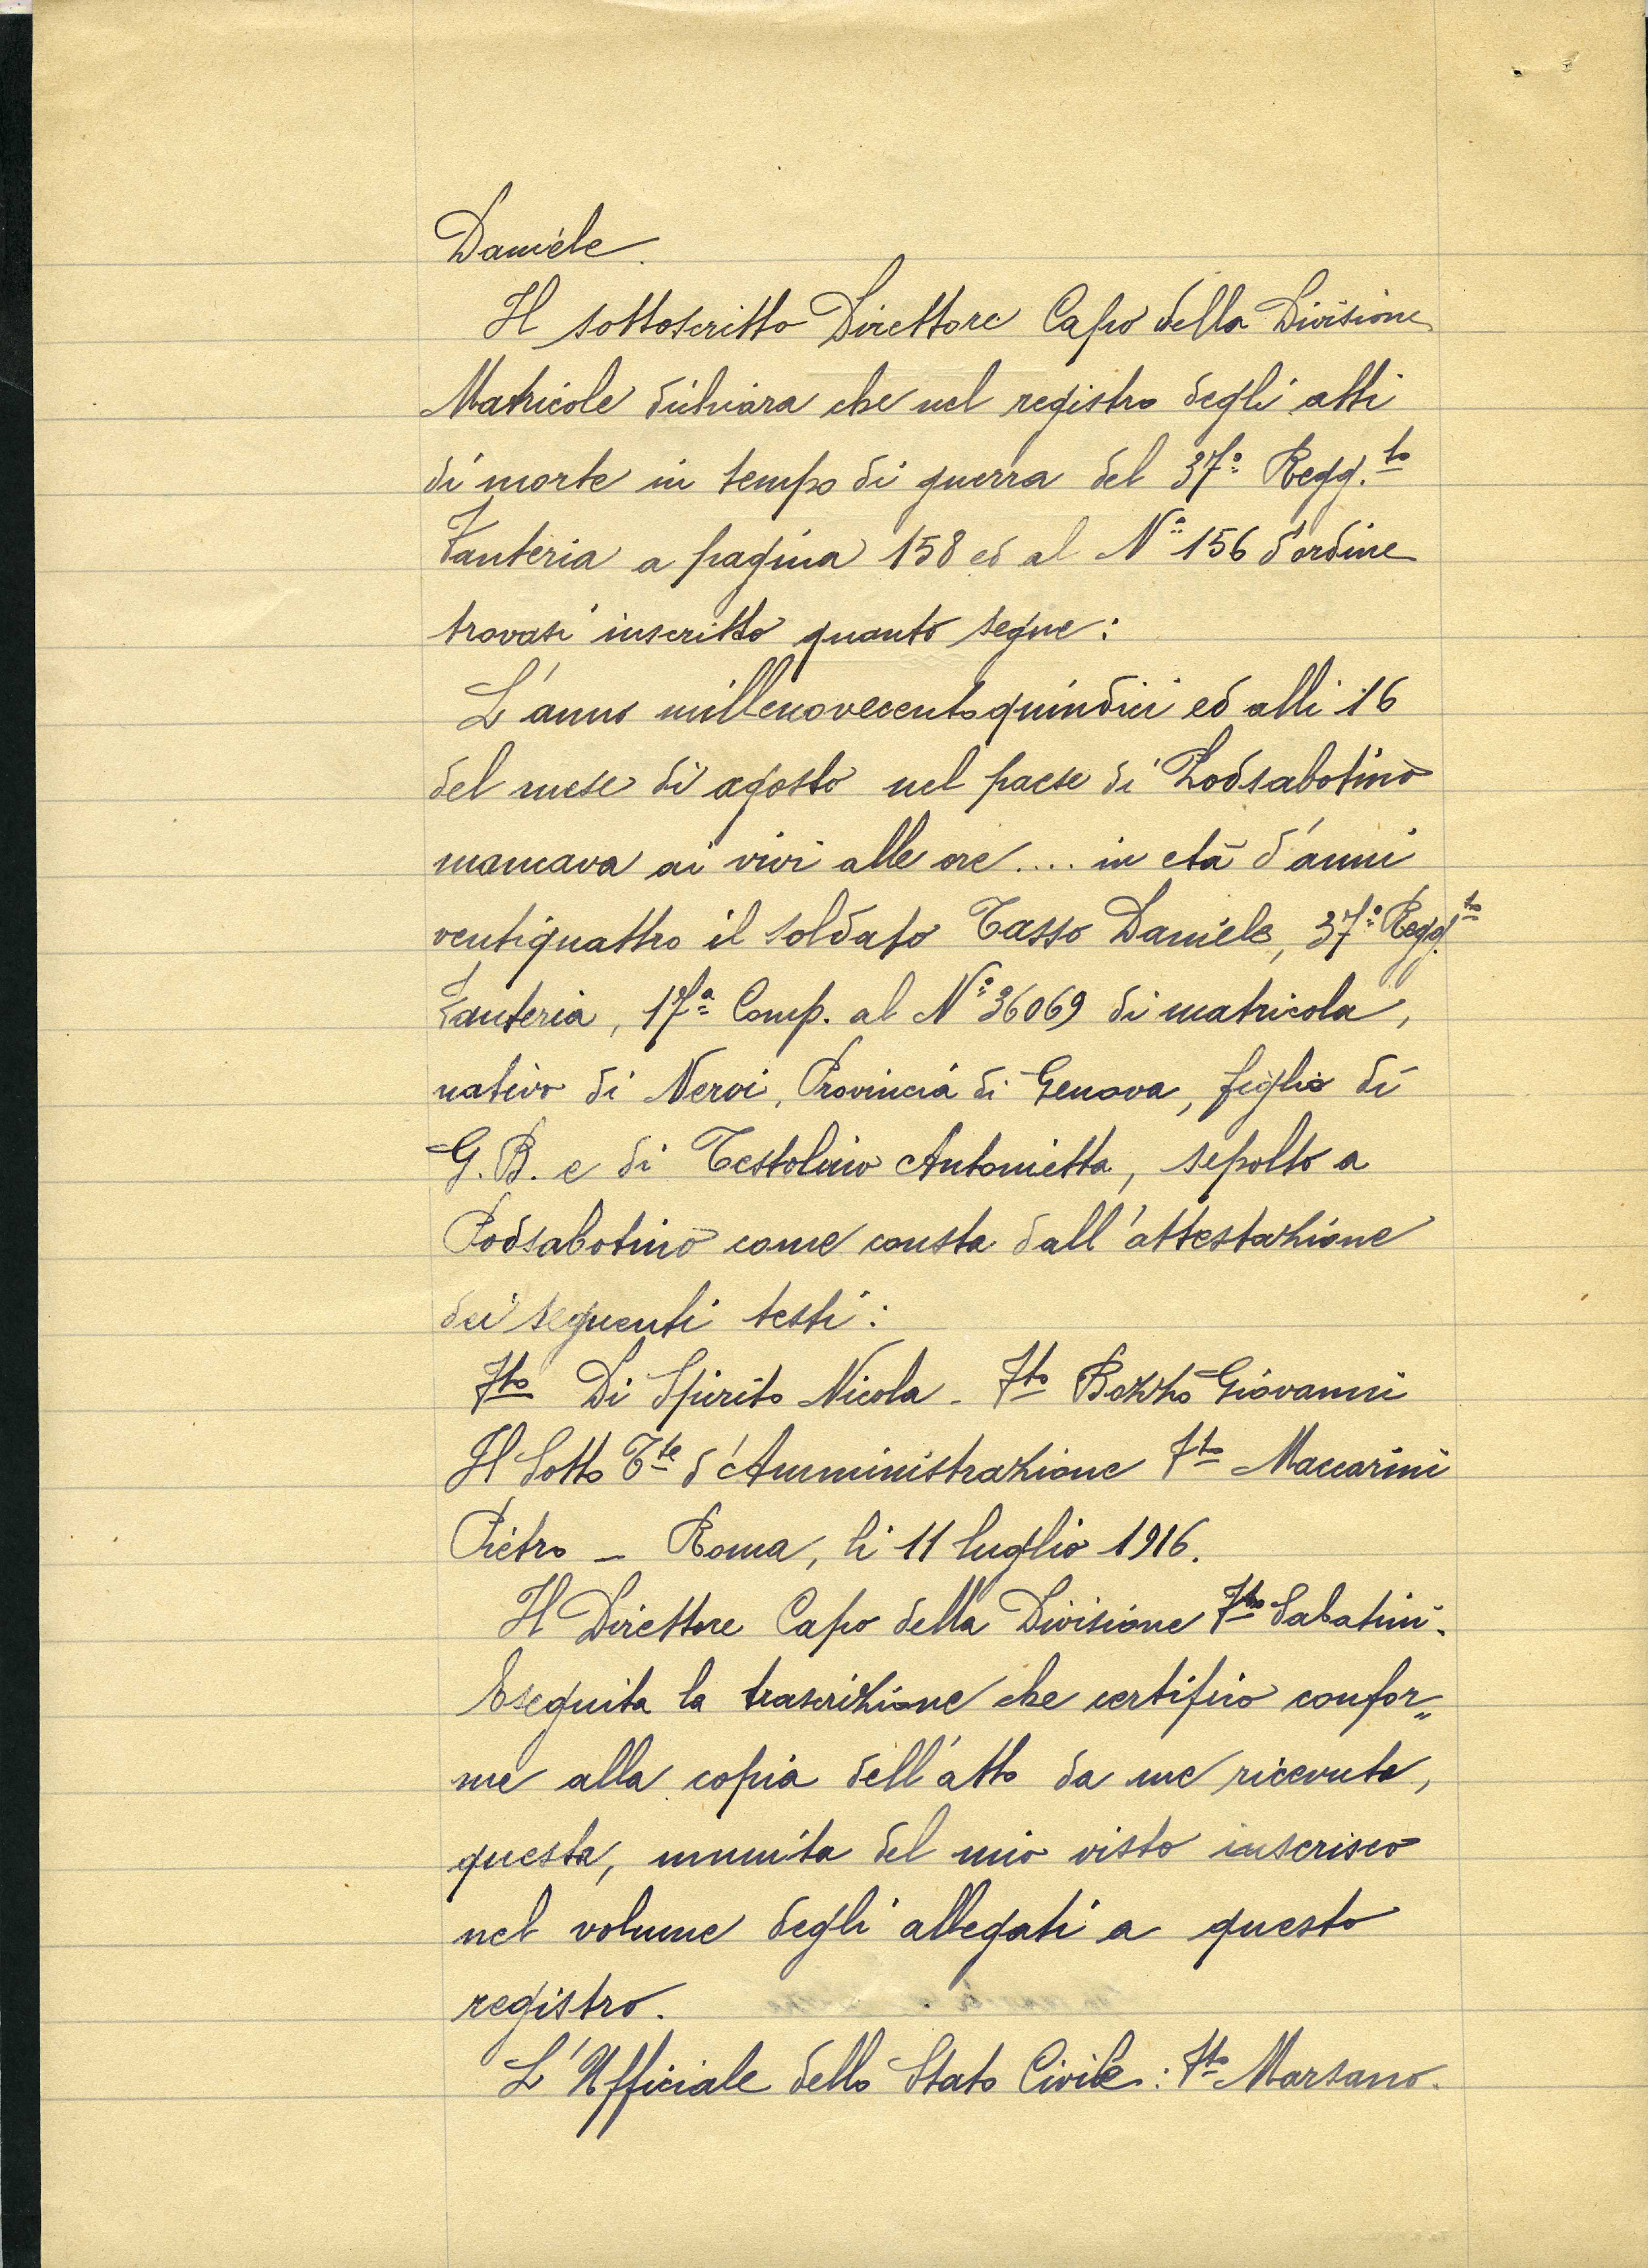 Daniele.
Il sottoscritto Direttore Capo della Divisione
Matricole dichiara che nel registro degli atti
di morte in tempo di guerra del 37° Regg.to
Fanteria a pagina 158 ed al N° 156 d'ordine
trovasi inscritto quanto segue:
L'anno millenovecentoquindici ed alli 16
del mese di agosto nel paese di Podsabotino
mancava ai vivi alle ore .... in età d'anni
ventiquattro il soldato Tasso Daniele, 37° Regg.to
Fanteria, 17ª Comp. al N° 36069 di matricola,
nativo di Nervi, Provincia di Genova, figlio di
G. B. e di Testolino Antonietta, sepolto a
Podsabotino come consta dall'attestazione
dei seguenti testi:
Fto Di Spirito Nicola - Fto Bozzo Giovanni
Il Sotto Tte d'Amministrazione Fto Maccarini
Pietro - Roma, li 11 luglio 1916.
Il Direttore Capo della Divisione Fto Sabatini.
Eseguita la trascrizione che certifico confor„
me alla copia dell'atto da me ricevuta,
questa, munita del mio visto inserisco
nel volume degli allegati a questo
registro.
L'Ufficiale dello Stato Civile: Fto Marsano.